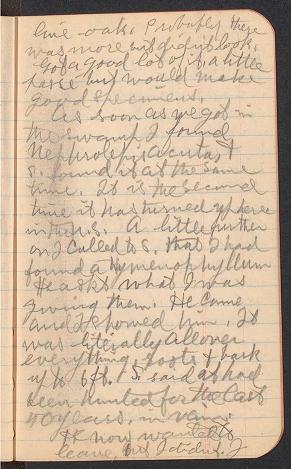 live oak. Probably there
was more but didn't look.
Got a good lot of it, a little
but would make
good specimens.
As soon as we got in
the swamp I found
Nephrolepis acuta, &
S. found it at the same
time. It is the second
time it has turned up here
in the U.S. A little further
on I called to S. that I had
found a Hymenophyllum
He asks what I was
giving them. He came
and I showed him. It
was literally all over
everything, roots & bark
up to 6 ft. S. said it had
been hunted for the last
40 years, in vain.
He now wanted to
leave, but I didn't. I